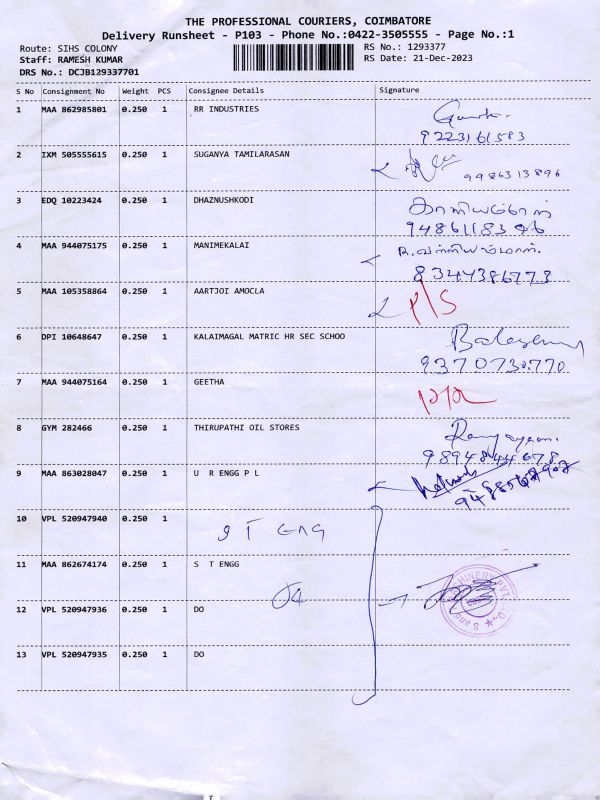 THE PROFESSIONAL COURIERS, COIMBATORE
Delivery Runsheet - P103 - Phone No.:0422-3505555 - Page No.:1
Route: SIHS COLONY RS No.: 1293377
Staff: RAMESH KUMAR RS Date: 21-Dec-2023
DRS No.: DCJB129337701
S No Consignment No Weight PCS Consignee Details Signature
1 MAA 862985801 0.250 1 RR INDUSTRIES
9223161583
2 IXM 505555615 0.250 1 SUGANYA TAMILARASAN
9986313896
3 EDQ 10223424 0.250 1 DHAZNUSHKODI
4 MAA 944075175 0.250 1 MANIMEKALAI
8344386773
5 MAA 105358864 0.250 1 AARTJOI AMOCLA P/S
6 DPI 10648647 0.250 1 KALAIMAGAL MATRIC HR SEC SCHOO
9370730770
7 MAA 944075164 0.250 1 GEETHA
8 GYM 282466 0.250 1 THIRUPATHI OIL STORES
9894844678
9 MAA 863028047 0.250 1 U R ENGG P L
10 VPL 520947940 0.250 1 S T ENG
11 MAA 862674174 0.250 1 S T ENGG
04
12 VPL 520947936 0.250 1 DO
13 VPL 520947935 0.250 1 DO